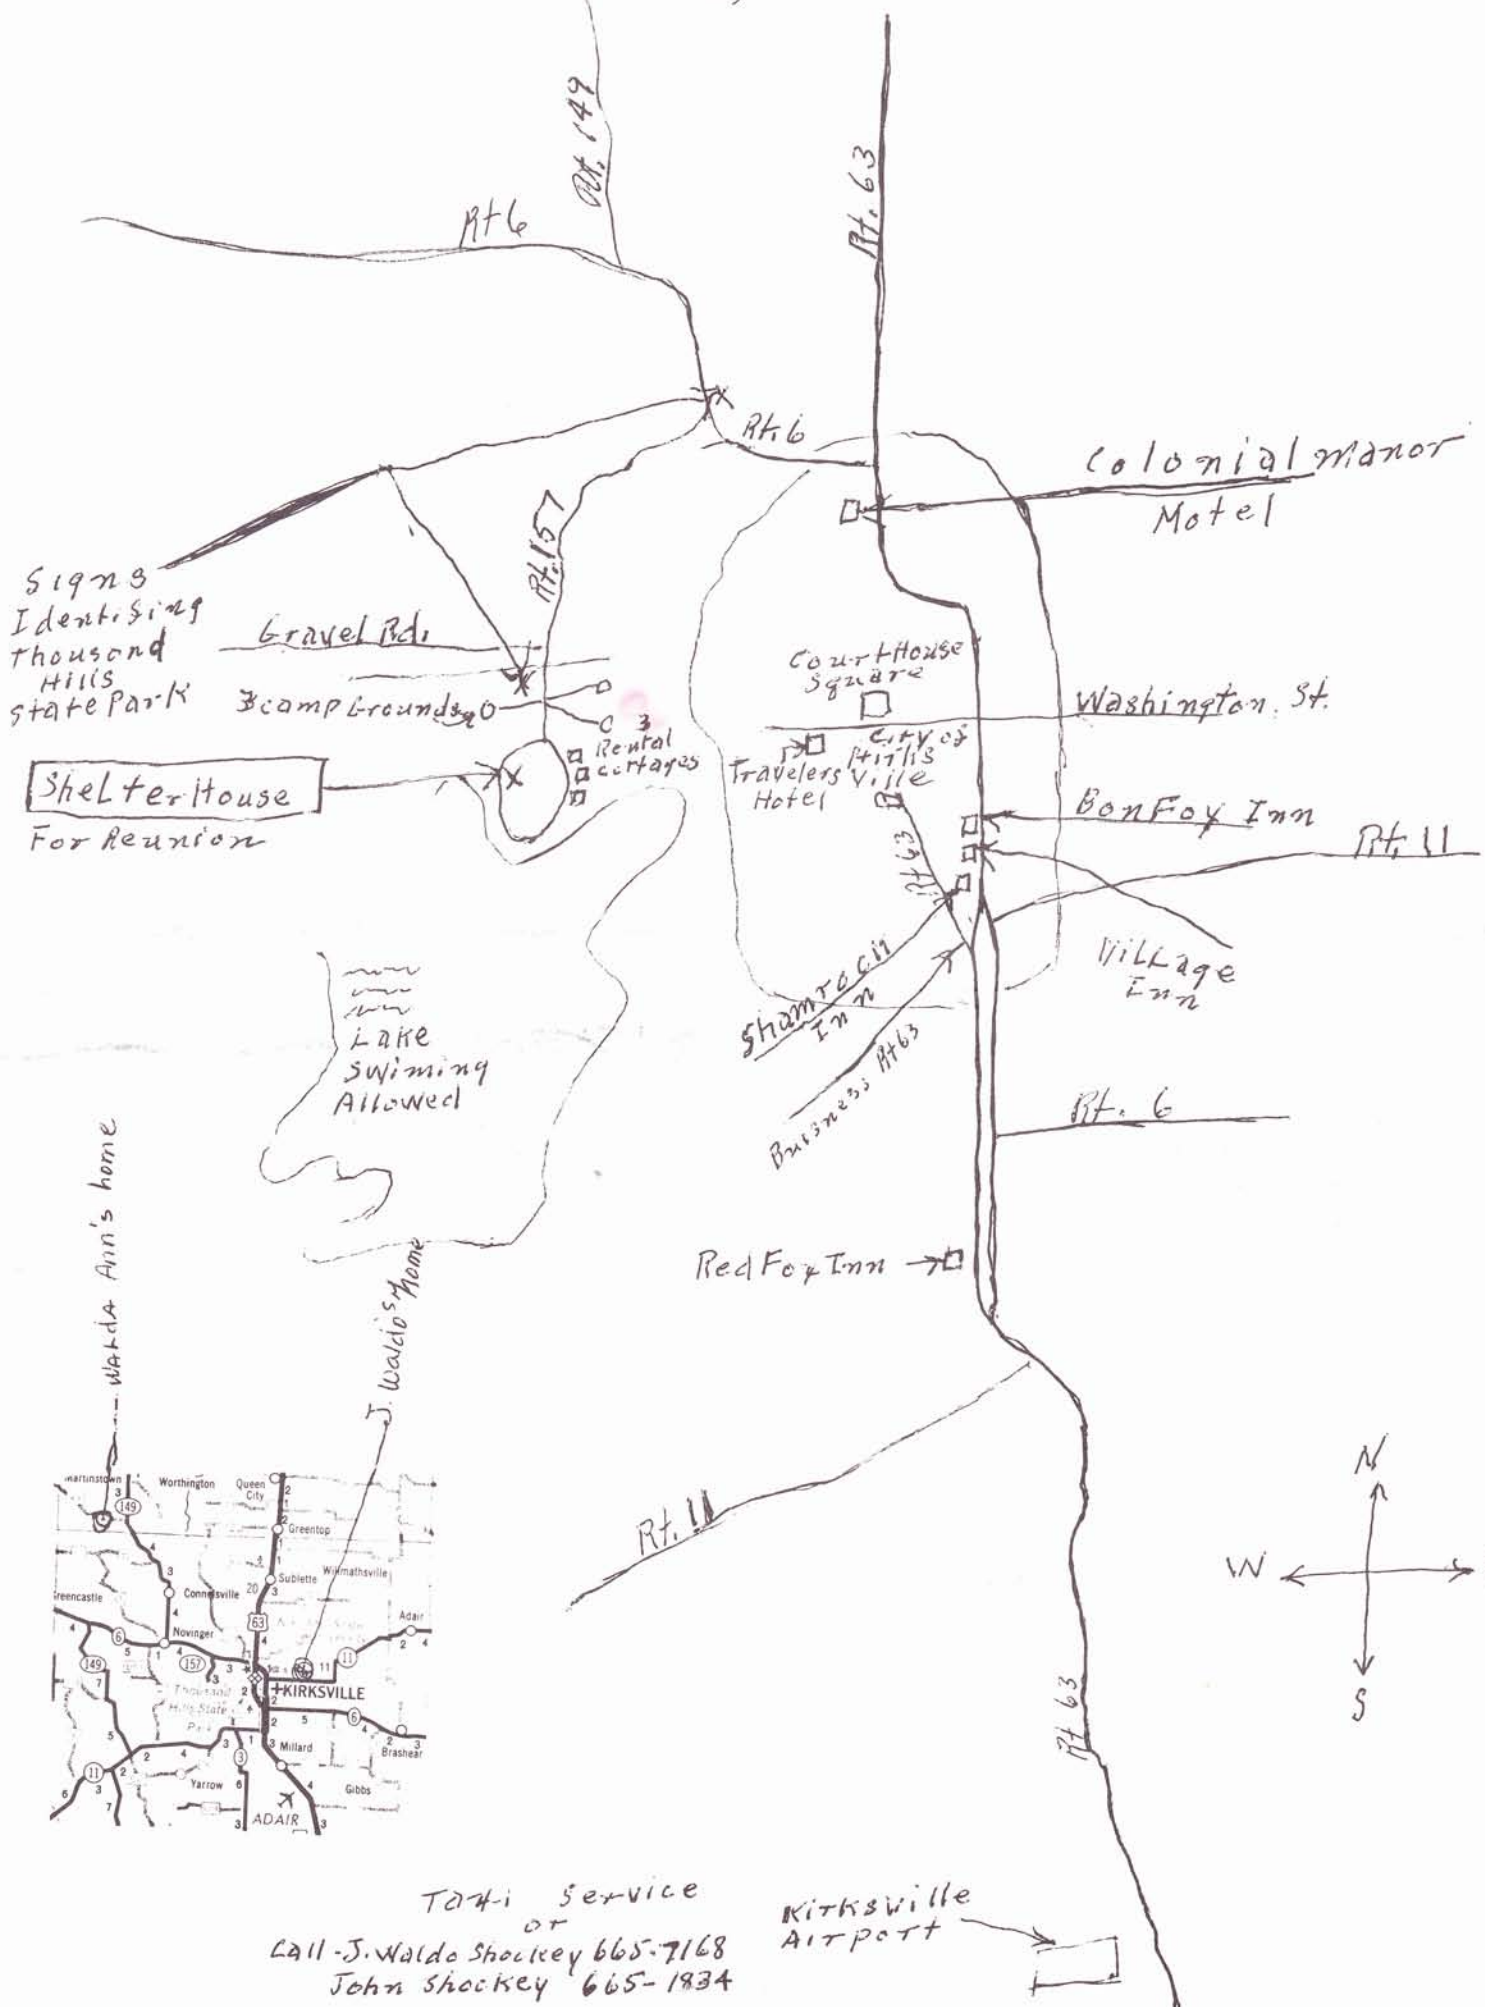 Rt. 149
Rt. 63
Rt 6
Rt. 6
Colonial Manor
Motel
Rt. 157
Signs
Identifing
Thousand
Hills
State Park
Gravel Rd.
3 camp Grounds
C 3
Rental
cottages
Shelter House
For Reunion
Court House
Square
Washington St.
City of
Kirks
Ville
Travelers
Hotel
Rt 63
BonFoy Inn
Rt. 11
Village
Inn
Shamrock
Inn
Business Rt 63
Lake
Swiming
Allowed
Rt. 6
Red Fox Inn
Walda Ann's home
J. Waldo's home
Rt. 11
N
W
S
Rt 63
Martinstown
Worthington
Queen
City
149
Greentop
Sublette
Willmathsville
Connelsville
20
reencastle
63
Adair
6
Novinger
157
11
149
Thousand
Hills State
Park
KIRKSVILLE
6
Millard
Brashear
11
3
Yarrow
Gibbs
ADAIR
Taxi Service
or
Call - J. Waldo Shockey 665-7168
John Shockey 665-1834
Kirksville
Airport